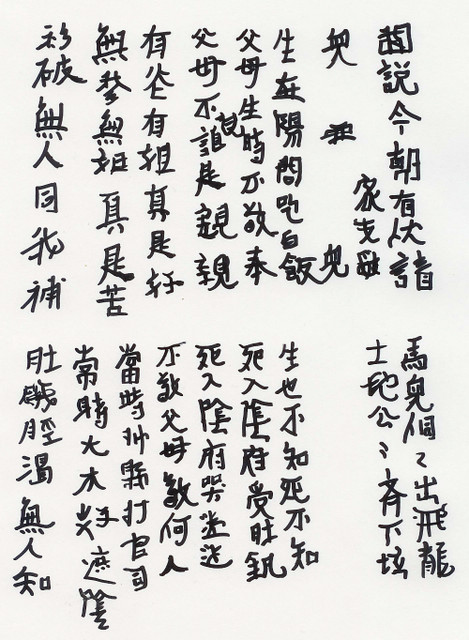 聞説今朝有伏請
家先
生在陽間吃白飯
父母生時不敬奉
父母不是親親
有有祖真是好
無無姐真是苦
衫破無人同我補
馬兒個々出飛龍
土地公々齊下坛
生也不知死不知
死入陰府受肚飢
死入陰府哭
不敬父母敬何人
當時州縣打官司
常時大木好遮陰
肚饑脛渴無人知